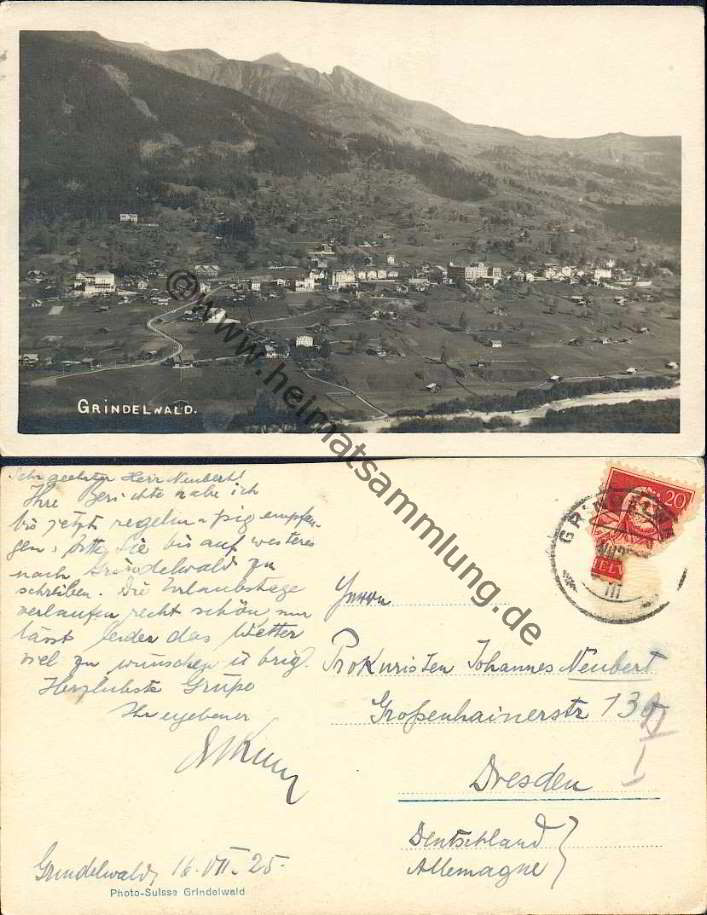 GRINDELWALD.
@www.heimatsammlung.de
Sehr geehrter Herr Neubert!
Ihre Berichte habe ich
bis jetzt regelmäßig empfan-
gen, bitte Sie bis auf weiteres
nach Grindelwald zu
schreiben. Die Urlaubstage
verlaufen recht schön nur
lässt leider das Wetter
viel zu wünschen übrig.
Herzlichste Grüße
Ihr ergebener
Grindelwald, 16.VII.25.
Photo-Suisse Grindelwald
20
GRINDELW
III
Herrn
Prokuristen Johannes Neubert
Großenhainerstr
Dresden
Deutschland
Allemagne